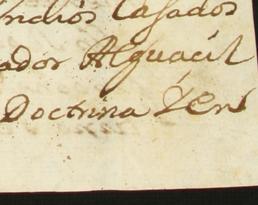 Indios Casados
ador Alguacil
Doctrina Yen